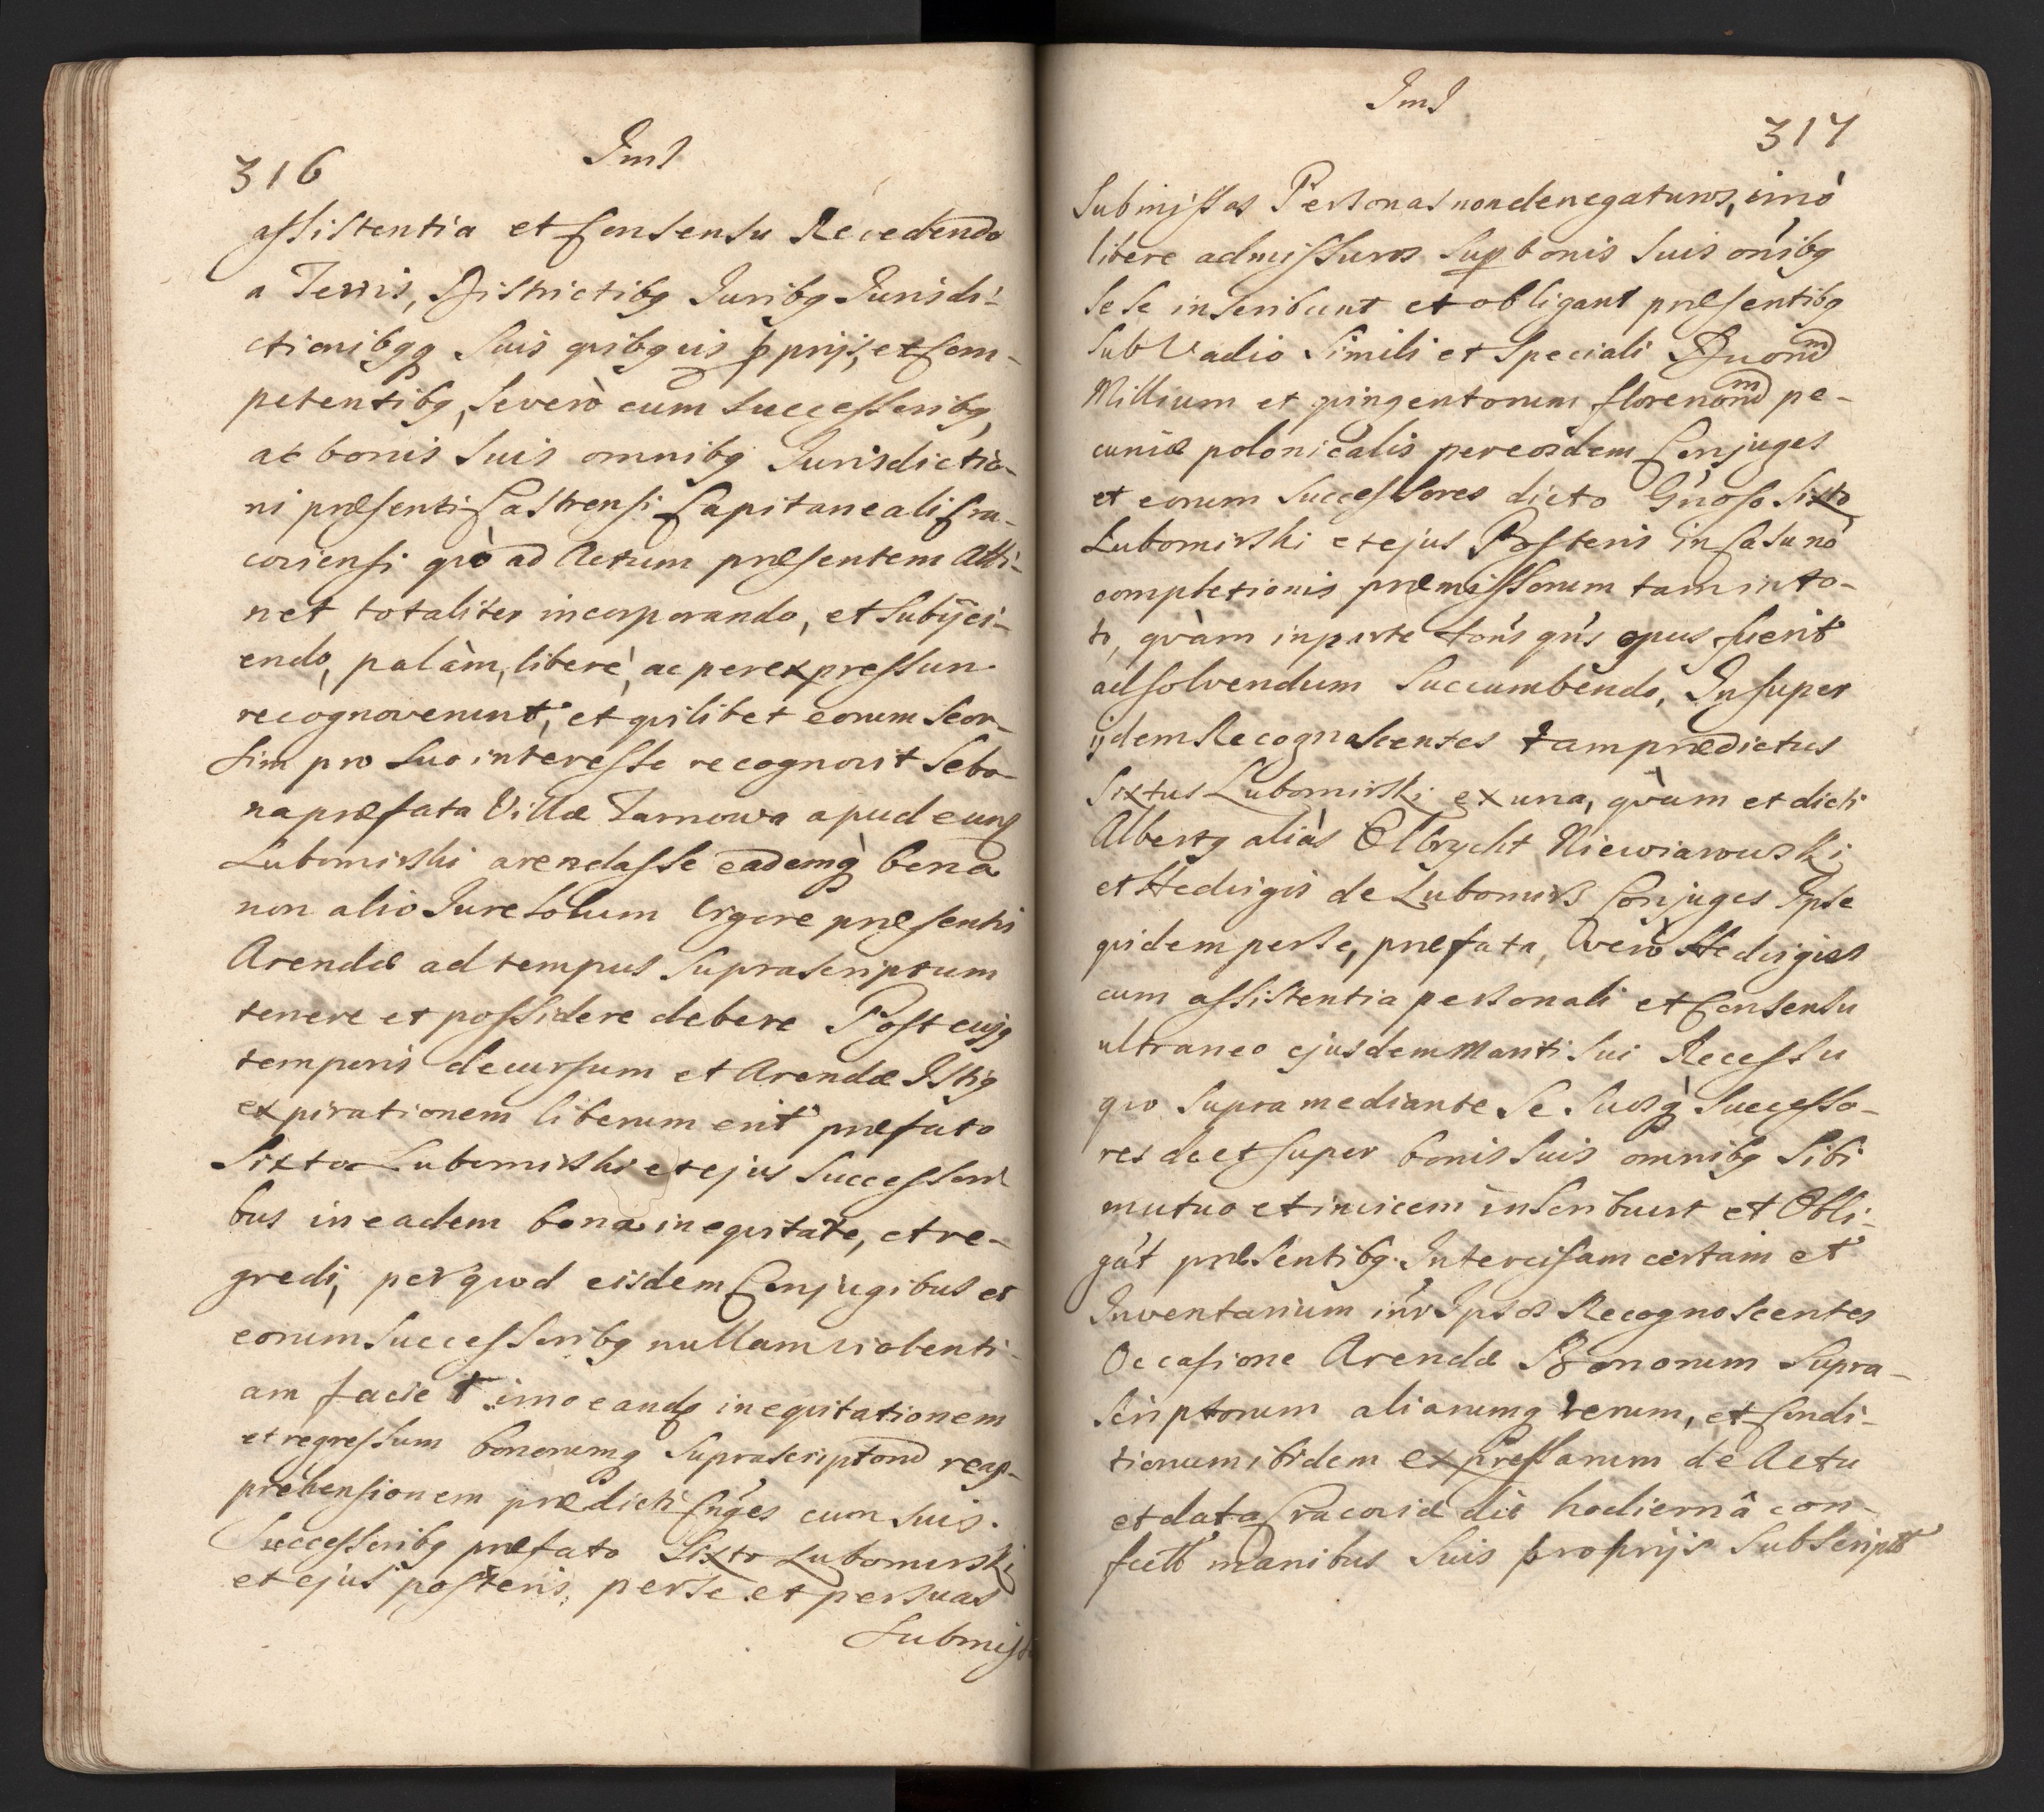 316
Ims
assistentia et Consensu Recedendo
a Terris, Districtibq Juribq Jurisdi-
ctionibqq Suis quibq vis pprijs, et Com-
petentibq, Se verò cum Successoribq,
ac bonis Suis omnibq Jurisdictio-
ni præsenti Castrensi Capitaneali Cra-
coviensi qvò ad Actum præsentem Atti-
net totaliter incorporando, et Subijci-
endo, palàm, liberè, ac per expressum
recognoverunt, et qvilibet eorum Seor-
sim pro Suo interesse recognovit Se bo-
na præfata Villæ Tarnowa apud eund
Lubomirski arendasse eademq̀ bona
non alio Jure Solum Vigore præsentis
Arendæ ad tempus Suprascriptum
tenere et possidere debere Post cujq
temporis decursum et Arendæ Istiq
expirationem liberum erit præfato
Sixto Lubomirski et ejus Successori-
bus in eadem bona ineqvitare, et re-
gredi, per qvod eisdem Conjugibus et
eorum Successoribq nullam violenti-
am faciet imo eand ineqvitationem
et regressum bonorumq Suprascriptord reap-
prehensionem prædicti Cnges cum Suis
Successoribq præfato Sixto Lubomirski
et ejus posteris, per Se et per Suas
Submiss
Ims
317
Submissas Personas non denegaturos, imò
libere admissuros Sup bonis Suis onibq
Se Se inscribunt et obligant præsentibq
Sub Vadio Simili et Speciali Duord
Millium et qvingentorum florenord pe-
cuniæ polonicalis per eosdem Conjuges
et eorum Successores dicto Gnoso Sixto
Lubomirski et ejus Posteris in Casu nò
completionis præmissorum tam in to-
to, qvàm in parte tons qns opus fuerit
ad solvendum Succumbendo, Insuper
ijdem Recognoscentes tam prædictus
Sixtus Lubomirski ex una, qvàm et dicti
Albertq aliàs Olbrycht Niewiarowski
et Hedvigis de Lubomirz Conjuges Ipse
qvidem per Se, præfata, Verò Hedvigis
cum assistentia personali et Consensu
ultraneo ejusdem Mariti Sui Recessu
qvo Supra mediante Se Suosq̀ Successo-
res de et super bonis Suis omnibq Sibi
mutuo et invicem inscribunt et Obli-
gat præsentibq. Intercisam certam et
Inventarium inr Ipsos Recognoscentes
Occasione Arendæ Bonorum Supra-
scriptorum aliarumq rerum, et Condi-
tionum ibidem expressarum de Actu
et data Cracoviæ die hodiernâ con-
fect manibus Suis proprijs Subscript